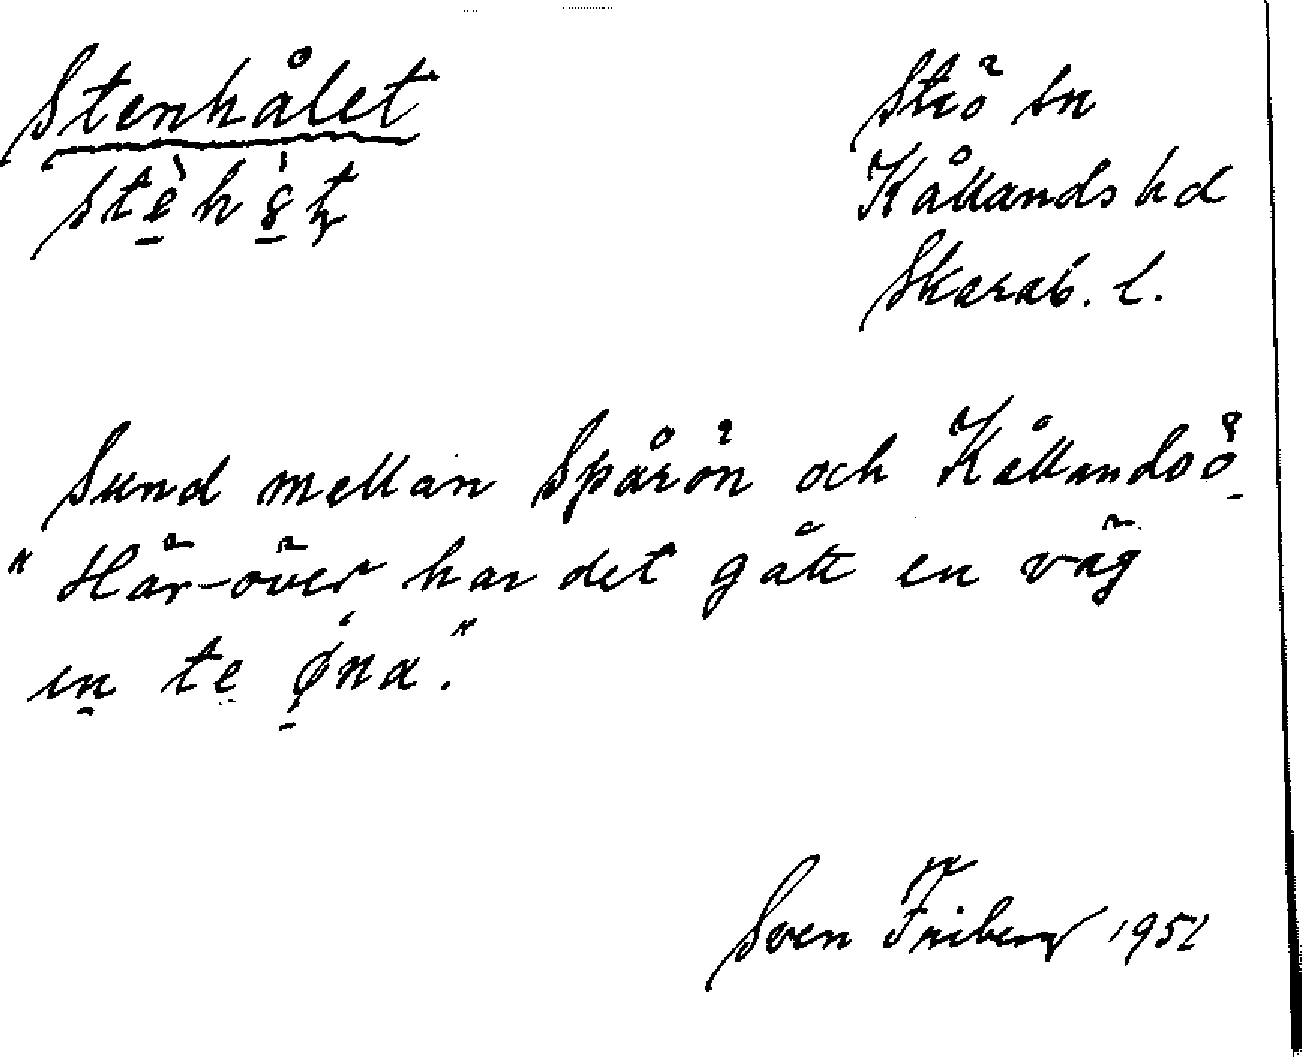 Stenhålet
Strö sn
Kållands hd
Skarab. l.
Sund mellan Spårön och Kållandsö.
"Här-över har det gått en väg
en te øna."
Sven Friberg 1951